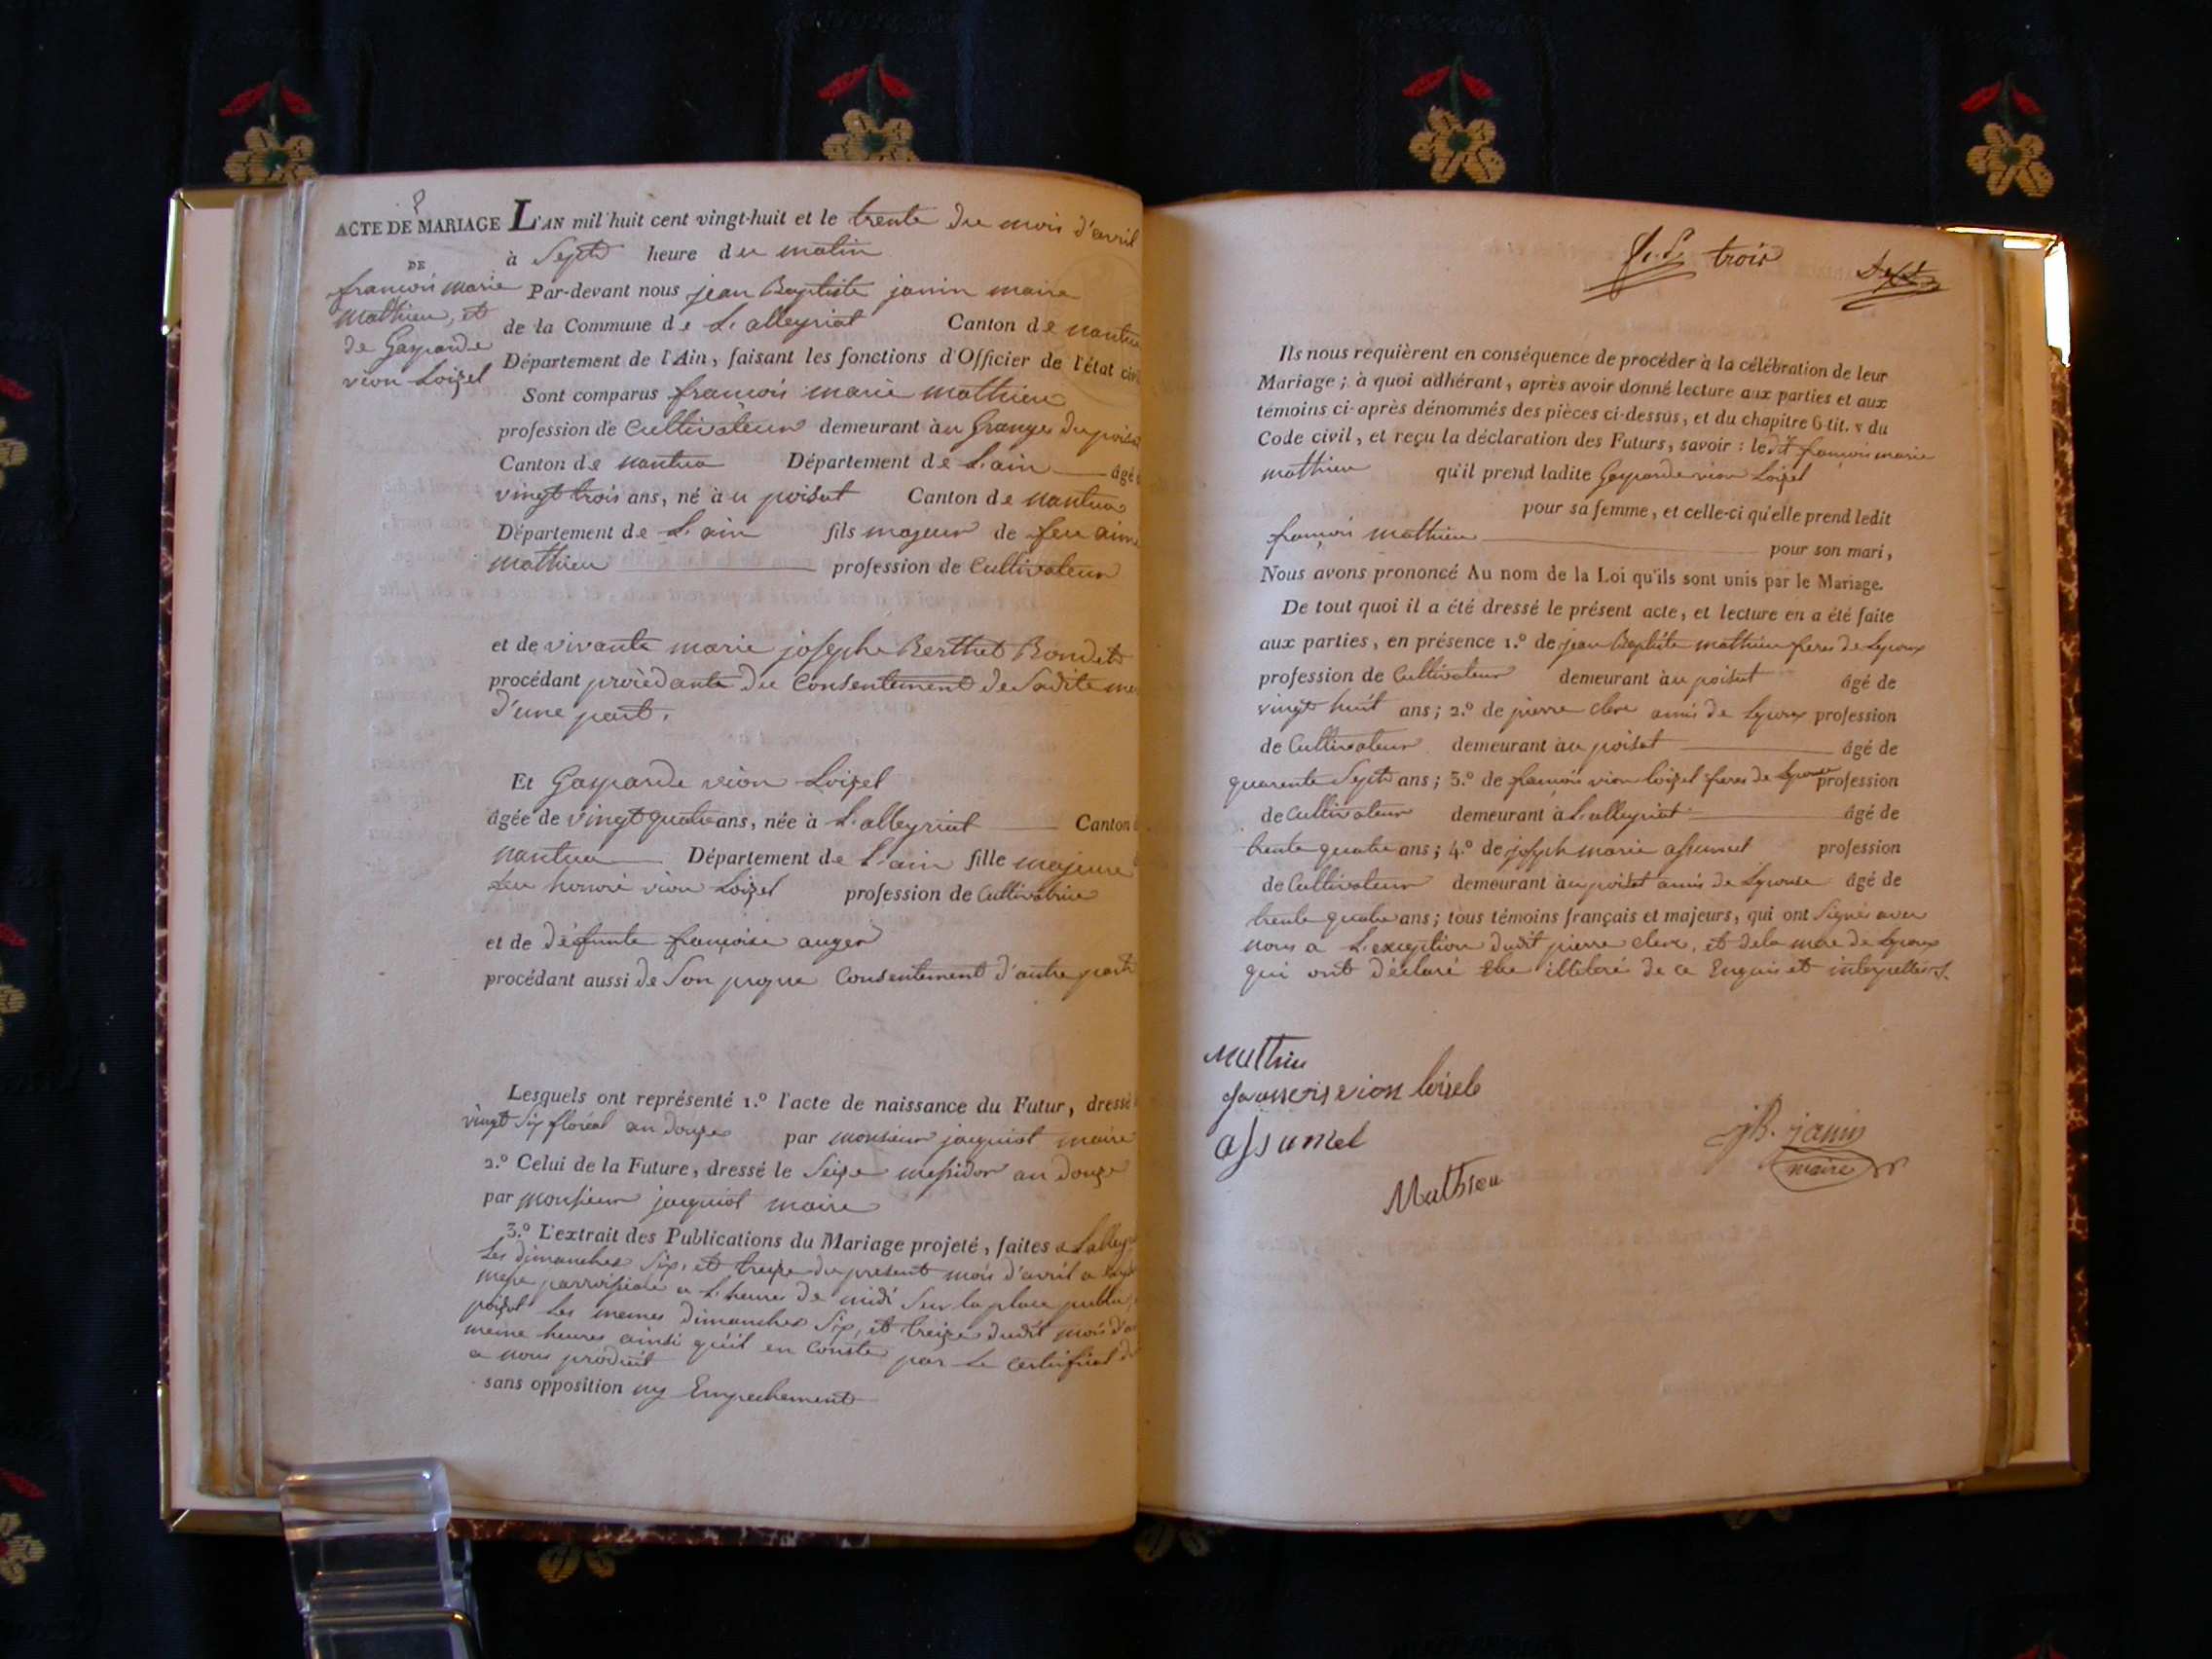 ACTE DE MARIAGE L'AN mil huit cent vingt-huit et le trente du mois d'avril
à Sept heure du matin
DE
françois marie
mathieu, et
de Gasparde
vion Loizel
Par-devant nous jean Baptiste janin maire
de la Commune de L'alleyriat Canton de nantua
Département de l'Ain, faisant les fonctions d'Officier de l'état civil
Sont comparus françois marie mathieu
profession de Cultivateur demeurant au Granges du poizat
Canton de nantua Département de L'ain âgé
vingt trois ans, né à u poisat Canton de nantua
Département de L'ain fils majeur de feu aimé
mathieu profession de Cultivateur
et de vivante marie josephe Berthet Bondet
procédant procèdante du Consentement de Sadite mere
d'une part,
Et Gasparde vion Loizel
âgée de vingt quatre ans, née à L'alleyriat Canton
nantua Département de L'ain fille majeure
feu honoré vion Loizel profession de Cultivatrice
et de défunte françoise auger
procédant aussi de Son propre Consentement d'autre part
Lesquels ont représenté 1.º l'acte de naissance du Futur, dressé
vingt Six floréal an douze par monsieur jacquiot maire
2.º Celui de la Future, dressé le Seize messidor an douze
par monsieur jacquiot maire
3.º L'extrait des Publications du Mariage projeté, faites a Lalley
Les dimanches Six, et treize du present mois d'avril a
messe parroissiale a L'heure de midi Sur la place publi
poizat Les memes dimanches Six, et treize dudit mois d'a
meme heures ainsi qu'il en Conste par Le Certificat
a nous produit
sans opposition ny Empechement
trois
Ils nous requièrent en conséquence de procéder à la célébration de leur
Mariage ; à quoi adhérant, après avoir donné lecture aux parties et aux
témoins ci-après dénommés des pièces ci-dessus, et du chapitre 6 tit. v du
Code civil, et reçu la déclaration des Futurs, savoir : ledit françois marie
mathieu qu'il prend ladite Gasparde vion Loizel
pour sa femme, et celle-ci qu'elle prend ledit
françois mathieu pour son mari,
Nous avons prononcé Au nom de la Loi qu'ils sont unis par le Mariage.
De tout quoi il a été dressé le présent acte, et lecture en a été faite
aux parties, en présence 1.º de jean Baptiste mathieu freres de Lepoux
profession de Cultivateur demeurant àu poisat âgé de
vingt huit ans ; 2.º de pierre clerc amis de Lepoux profession
de Cultivateur demeurant àu poisat âgé de
quarente Sept ans ; 3.º de françois vion loizel freres de Lepouse profession
de Cultivateur demeurant à L'alleyriat âgé de
trente quatre ans ; 4.º de joseph marie assumel profession
de Cultivateur demeurant àu poisat amis de Lepouse âgé de
trente quatre ans ; tous témoins français et majeurs, qui ont Signés avec
nous a L'exception dudit pierre clerc, et de la mere de Lepoux
qui ont déclaré Etre illiteré de ce Enquis et interpellés
Mathieu
vion loizele
assumel
Mathieu
JB. janin
maire